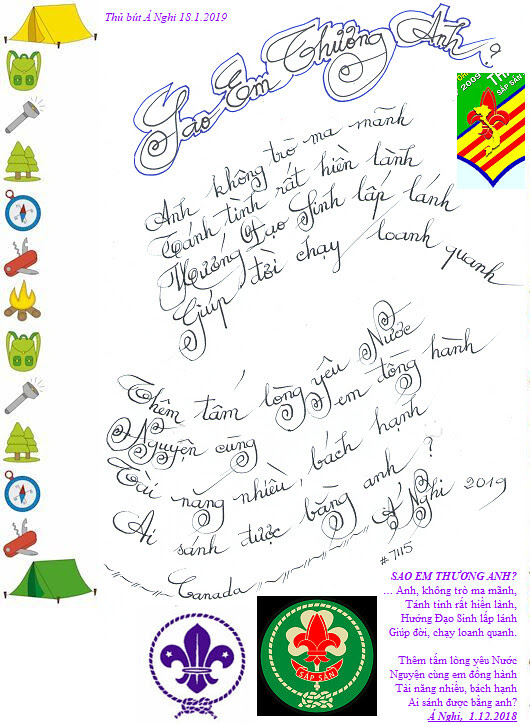 Thủ bút Á Nghi 18.1.2019
Sao Em Thương Anh ?
2009
SẮP SẴN
Anh không trò ma mãnh
Tánh tình rất hiền lành
Hướng Đạo Sinh lấp lánh
Giúp đời chạy loanh quanh
Thêm tấm lòng yêu Nước
Nguyện cùng em đồng hành
Tài năng nhiều, bách hạnh
Ai sánh được bằng anh ?
Á Nghi 2019
# 7115
Canada
SAO EM THƯƠNG ANH?
... Anh, không trò ma mãnh,
Tánh tình rất hiền lành,
Hướng Đạo Sinh lấp lánh
Giúp đời, chạy loanh quanh.
Thêm tấm lòng yêu Nước
Nguyện cùng em đồng hành
Tài năng nhiều, bách hạnh
Ai sánh được bằng anh?
Á Nghi, 1.12.2018
SẮP SẴN